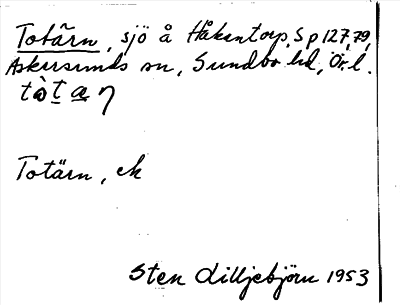 Totärn, sjö å Håkantorp, Sp 127, 79,
Askersunds sn, Sundbo hd, Ör. l.
tòtæη
Totärn, ek
Sten Lilljebjörn 1953